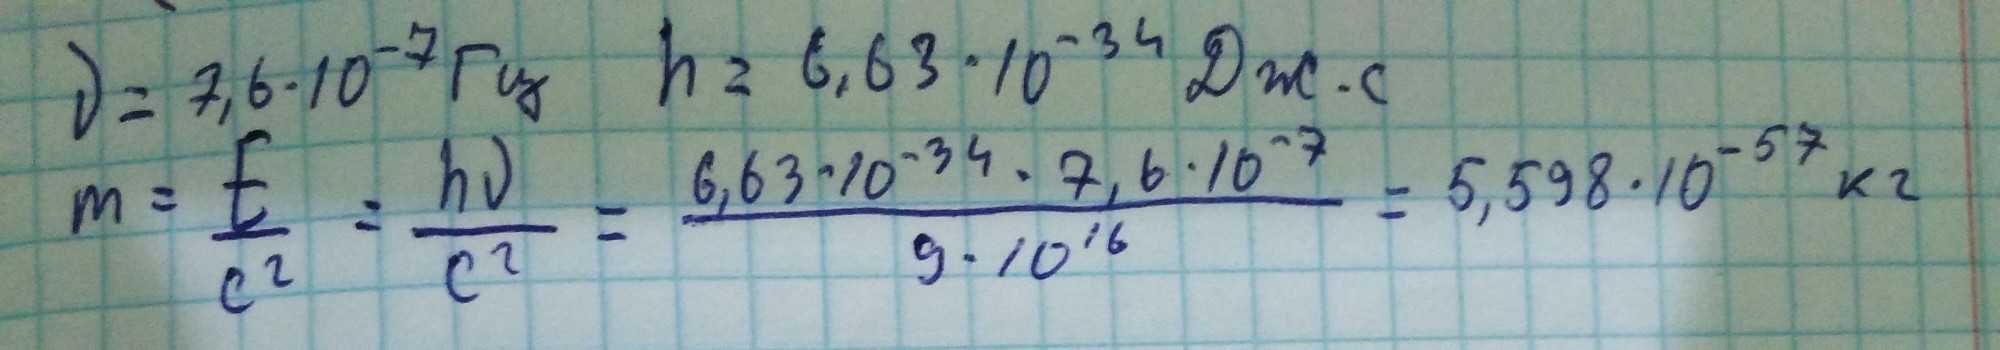 ν = 7,6·10⁻⁷ Гц h = 6,63·10⁻³⁴ Дж·с
m = E/c² = hν/c² = 6,63·10⁻³⁴·7,6·10⁻⁷/9·10¹⁶ = 5,598·10⁻⁵⁷ кг